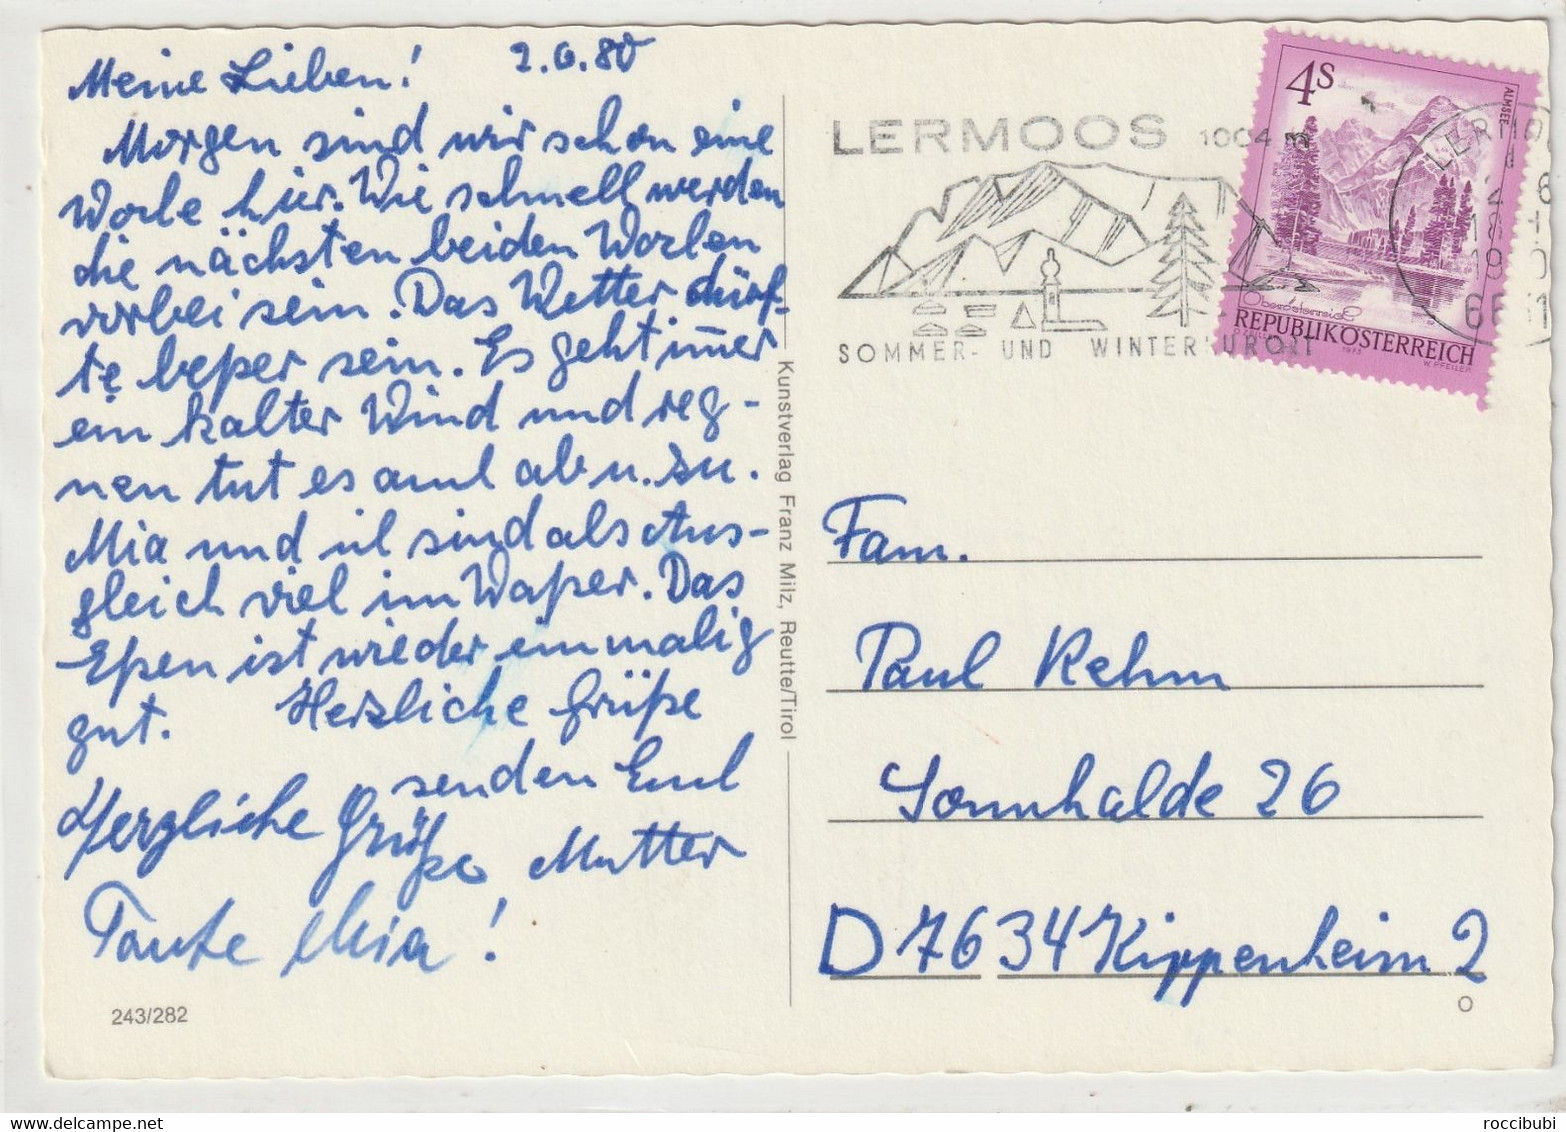 2.6.80
Meine Lieben!
Morgen sind wir schon eine
Woche hier. Wie schnell werden
die nächsten beiden Wochen
vorbei sein. Das Wetter dürf-
te beßer sein. Es geht im̅er
ein kalter Wind und reg-
nen tut es auch ab u. zu.
Mia und ich sind als Aus-
gleich viel im Waßer. Das
Eßen ist wieder einmalig
gut. Herzliche Grüße
senden Euch
Herzliche Grüße Mutter
Tante Mia!
243/282
Kunstverlag Franz Milz, Reutte/Tirol
LERMOOS 1004 m
SOMMER- UND WINTERKURORT
4S
ALMSEE
Oberösterreich
REPUBLIK ÖSTERREICH
1973
W. PFEILER
Fam.
Paul Rehm
Sonnhalde 26
D 7634 Kippenheim 2
O
roccibubi